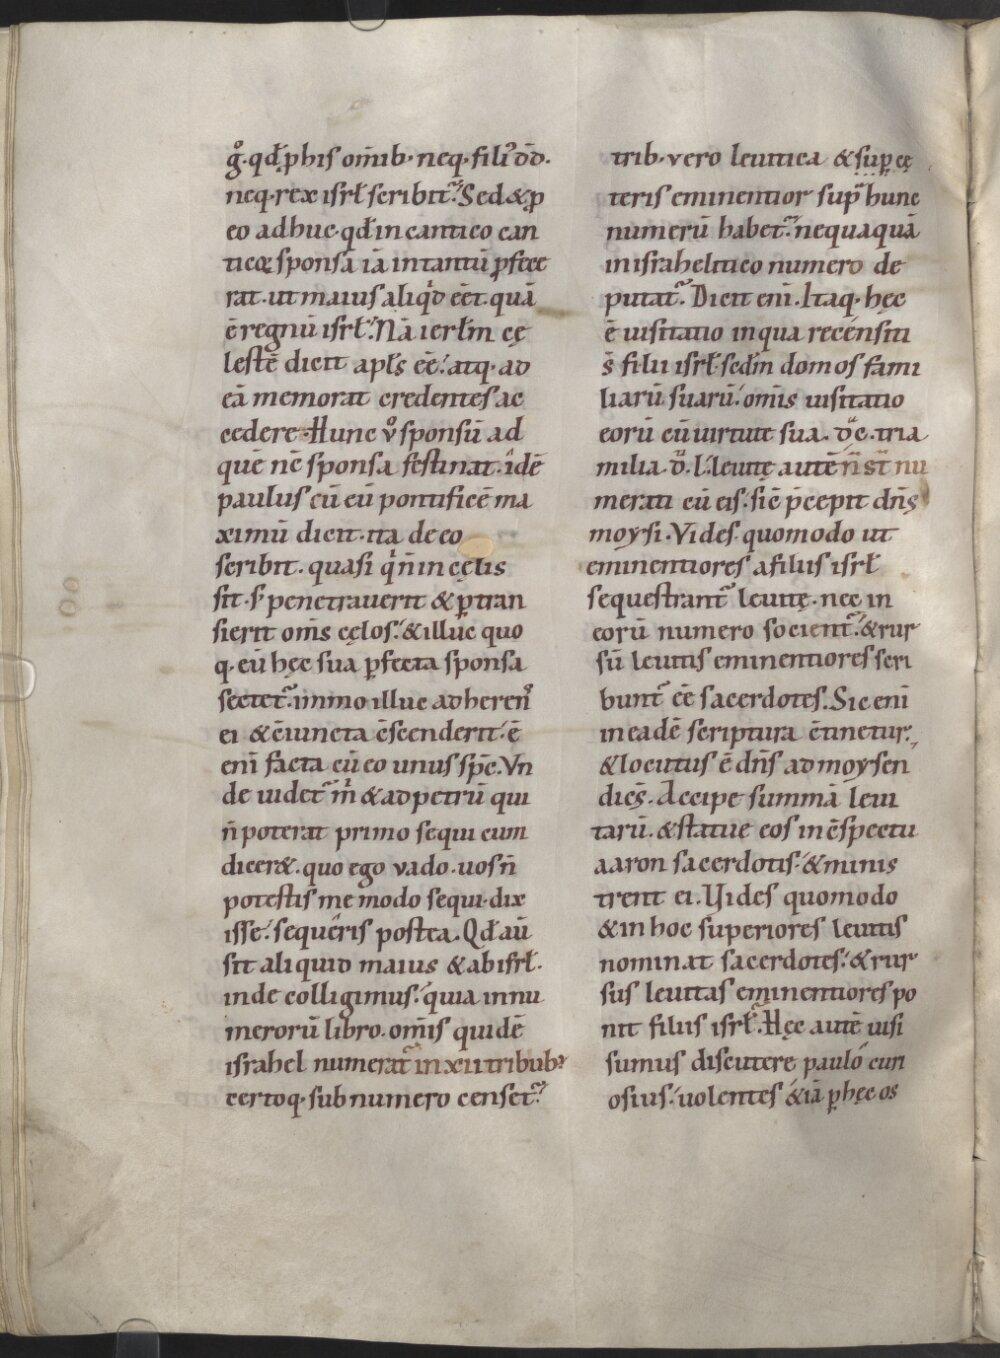 g̊·qđ p̱ his om̄ib· neq· filiꝰ dd̄.
neq· rex isrł scribit᷑? Sed & ꝓ
eo adhuc· qđ in cantico can
ticoꝝ sponsā iā in tantū ꝑfece
rat· ut maius aliq̇d eēt· quā
ē regnū isrł? Nā ierłm cę
lestē dicit apłs eē! atq· ad
eā memorat credentes ac
cedere· Hunc v̊ sponsū ad
quē nc̄ sponsa festinat· idē
paulus cū eū pontificē ma
ximū dicit· ita de eo
scribit. quasi q̇ n̄ in cęlis
sit· s; penetraverit & ꝑtran
sierit om̄s cęlos! & illuc quo
q· eū hęc sua ꝑfecta sponsa
sectet᷑ immo illuc adherenˢ
ei & c̄iuncta c̄scenderit! ē
enī facta cū eo unus sp̄c. Vn
de videt᷑ m̊ & ad petrū qui
n̄ poterat primo sequi cum
dicer&. quo ego vado. vos n̄
potestis me modo sequi· dix
isse! sequēris postea. Qđ aū
sit aliquid maius & ab isrł.
inde colligimus! quia in nu
merorū libro· om̄is quidē
israhel numerat᷑ in xii tribub᷒
certoq· sub numero censet᷑?
trib· vero levitica & sup̱ cę
teris eminentior sup̱ hunc
numerū habet᷑? nequaquā
in israhelitico numero de
putat᷑. Dicit enī. Itaq· hęc
ē visitatio in qua recénsiti
s̄ filii isrł· sedm̄ domos fami
liarū suarū! om̄is visitatio
eorū cū virtute sua. d̊c̊· tria
milia· d̊· l· levitę autē n̄ st̄ nu
merati cū eis· sic̄ p̄cepit dn̄s
moysi. Vides· quomodo ut
eminentiores a filiis isrł
sequestrant᷑ levitę· nec in
eorū numero socient᷑? & rur
sū levitis eminentiores scri
bunt᷑ eē sacerdotes. Sic enī
in eadē scriptura c̄tinetur.
& locutus ē dn̄s ad moysen
dicēs. Accipe summā levi
tarū· & statue eos in c̄spectu
aaron sacerdotis! & minis
trent ei. Vides quomodo
& in hoc superiores levitis
nominat sacerdotes! & rur
sus levitas eminentiores po
nit filiis isrł? Hęc autē visi
sumus discutere paulo curi
osius! volentes & iā ꝑ hęc os